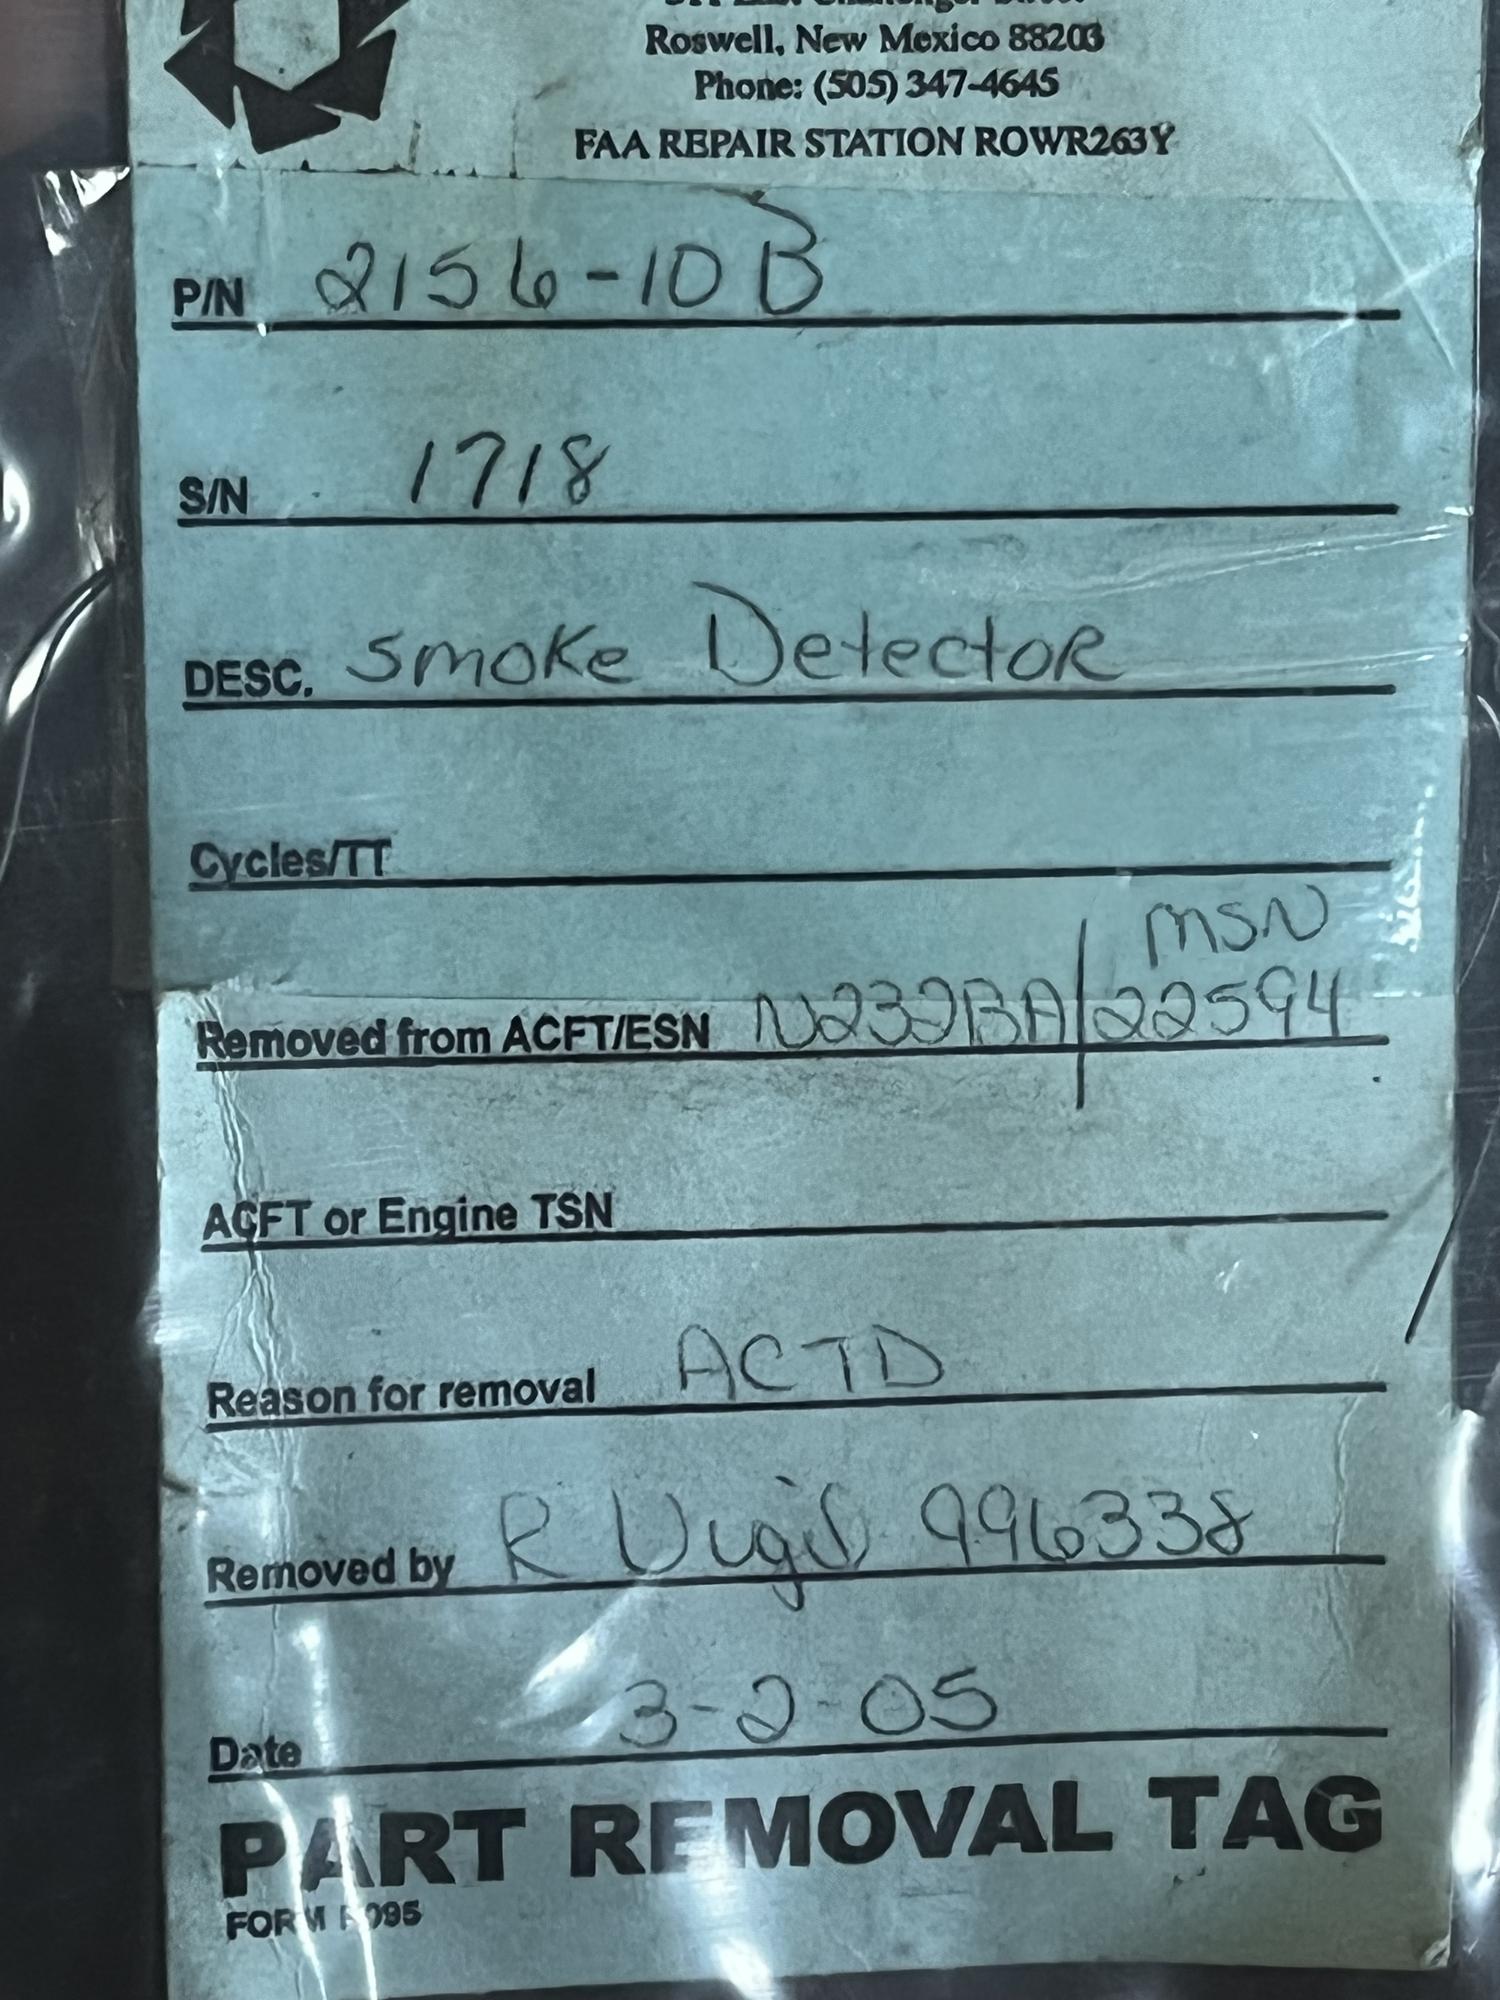 Roswell, New Mexico 88203
Phone: (505) 347-4645
FAA REPAIR STATION ROWR263Y
P/N 2156-10B
S/N 1718
DESC. Smoke Detector
Cycles/TT
MSN
Removed from ACFT/ESN N232BA/22594
ACFT or Engine TSN
Reason for removal ACTD
Removed by R Vigil 996338
Date 3-2-05
PART REMOVAL TAG
FORM R095